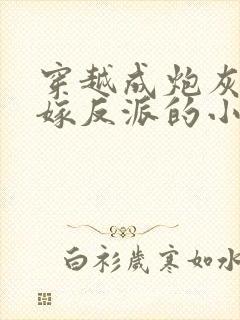 穿越成炮灰
嫁反派的小
白衫岁寒如水